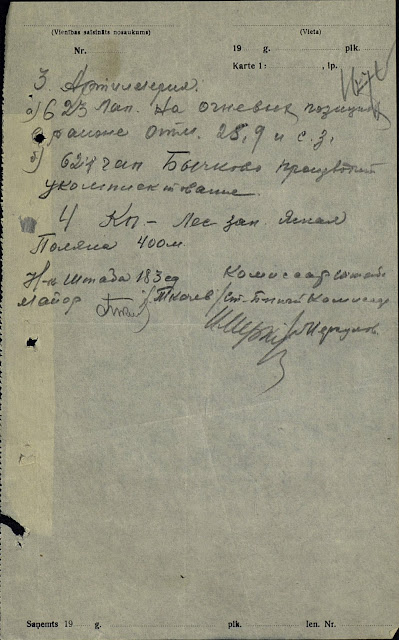 (Vienības saīsināts nosaukums) (Vieta)
Nr. 19 g. plk.
Karte 1: , lp.
3. Артиллерия.
а) 623 лап. на огневых позициях
в районе отм. 25,9 и с.з.
б) 624 гап Бычково производит
укомплектование.
4 КП – лес зап. Ясная
Поляна 400 м.
Н-к штаба 183 сд Комиссар штаба
майор /Ткалев/ Ст. б-ный комиссар
/Меркулов.
Saņemts 19 g. plk. Ien. Nr.